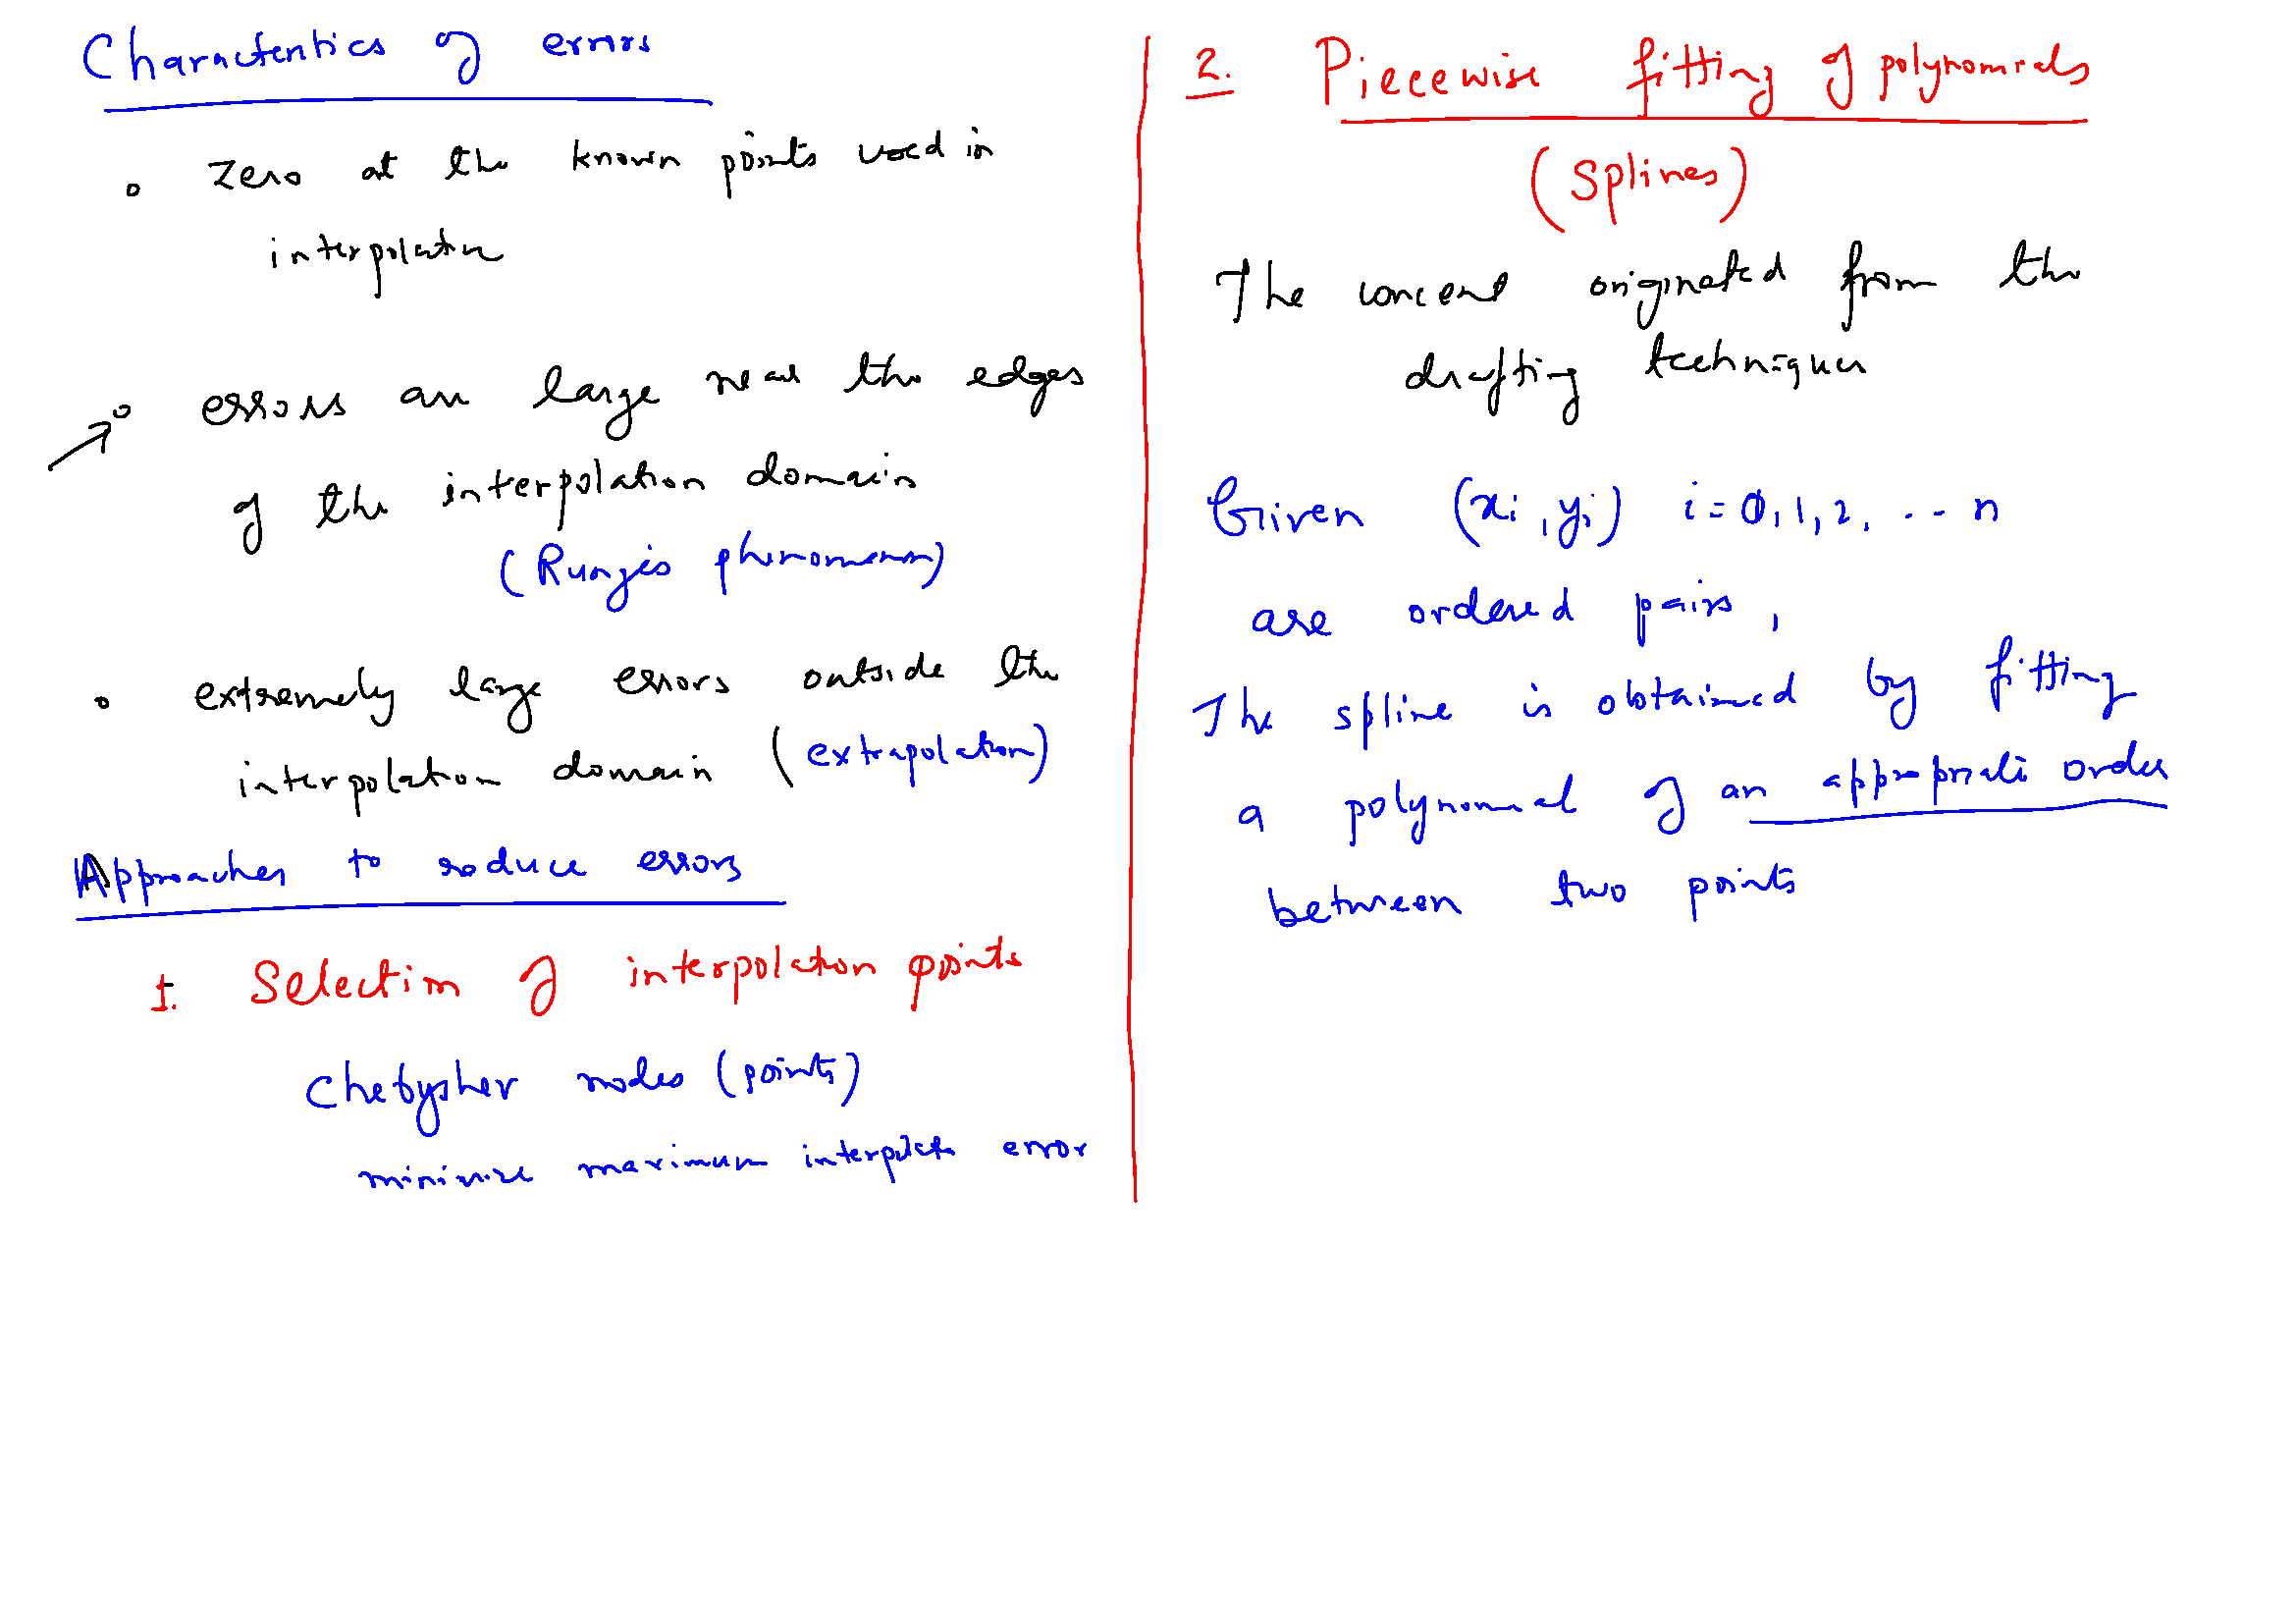 Characteristics of errors
o zero at the known points used in
interpolation
o errors are large near the edges
of the interpolation domain
(Runge's phenomenon)
o extremely large errors outside the
interpolation domain (extrapolation)
Approaches to reduce errors
1. Selection of interpolation points
Chebyshev nodes (points)
minimize maximum interpolation error
2. Piecewise fitting of polynomials
(Splines)
The concept originated from the
drafting techniques
Given (xi, yi) i = 0, 1, 2, ... n
are ordered pairs,
The spline is obtained by fitting
a polynomial of an appropriate order
between two points